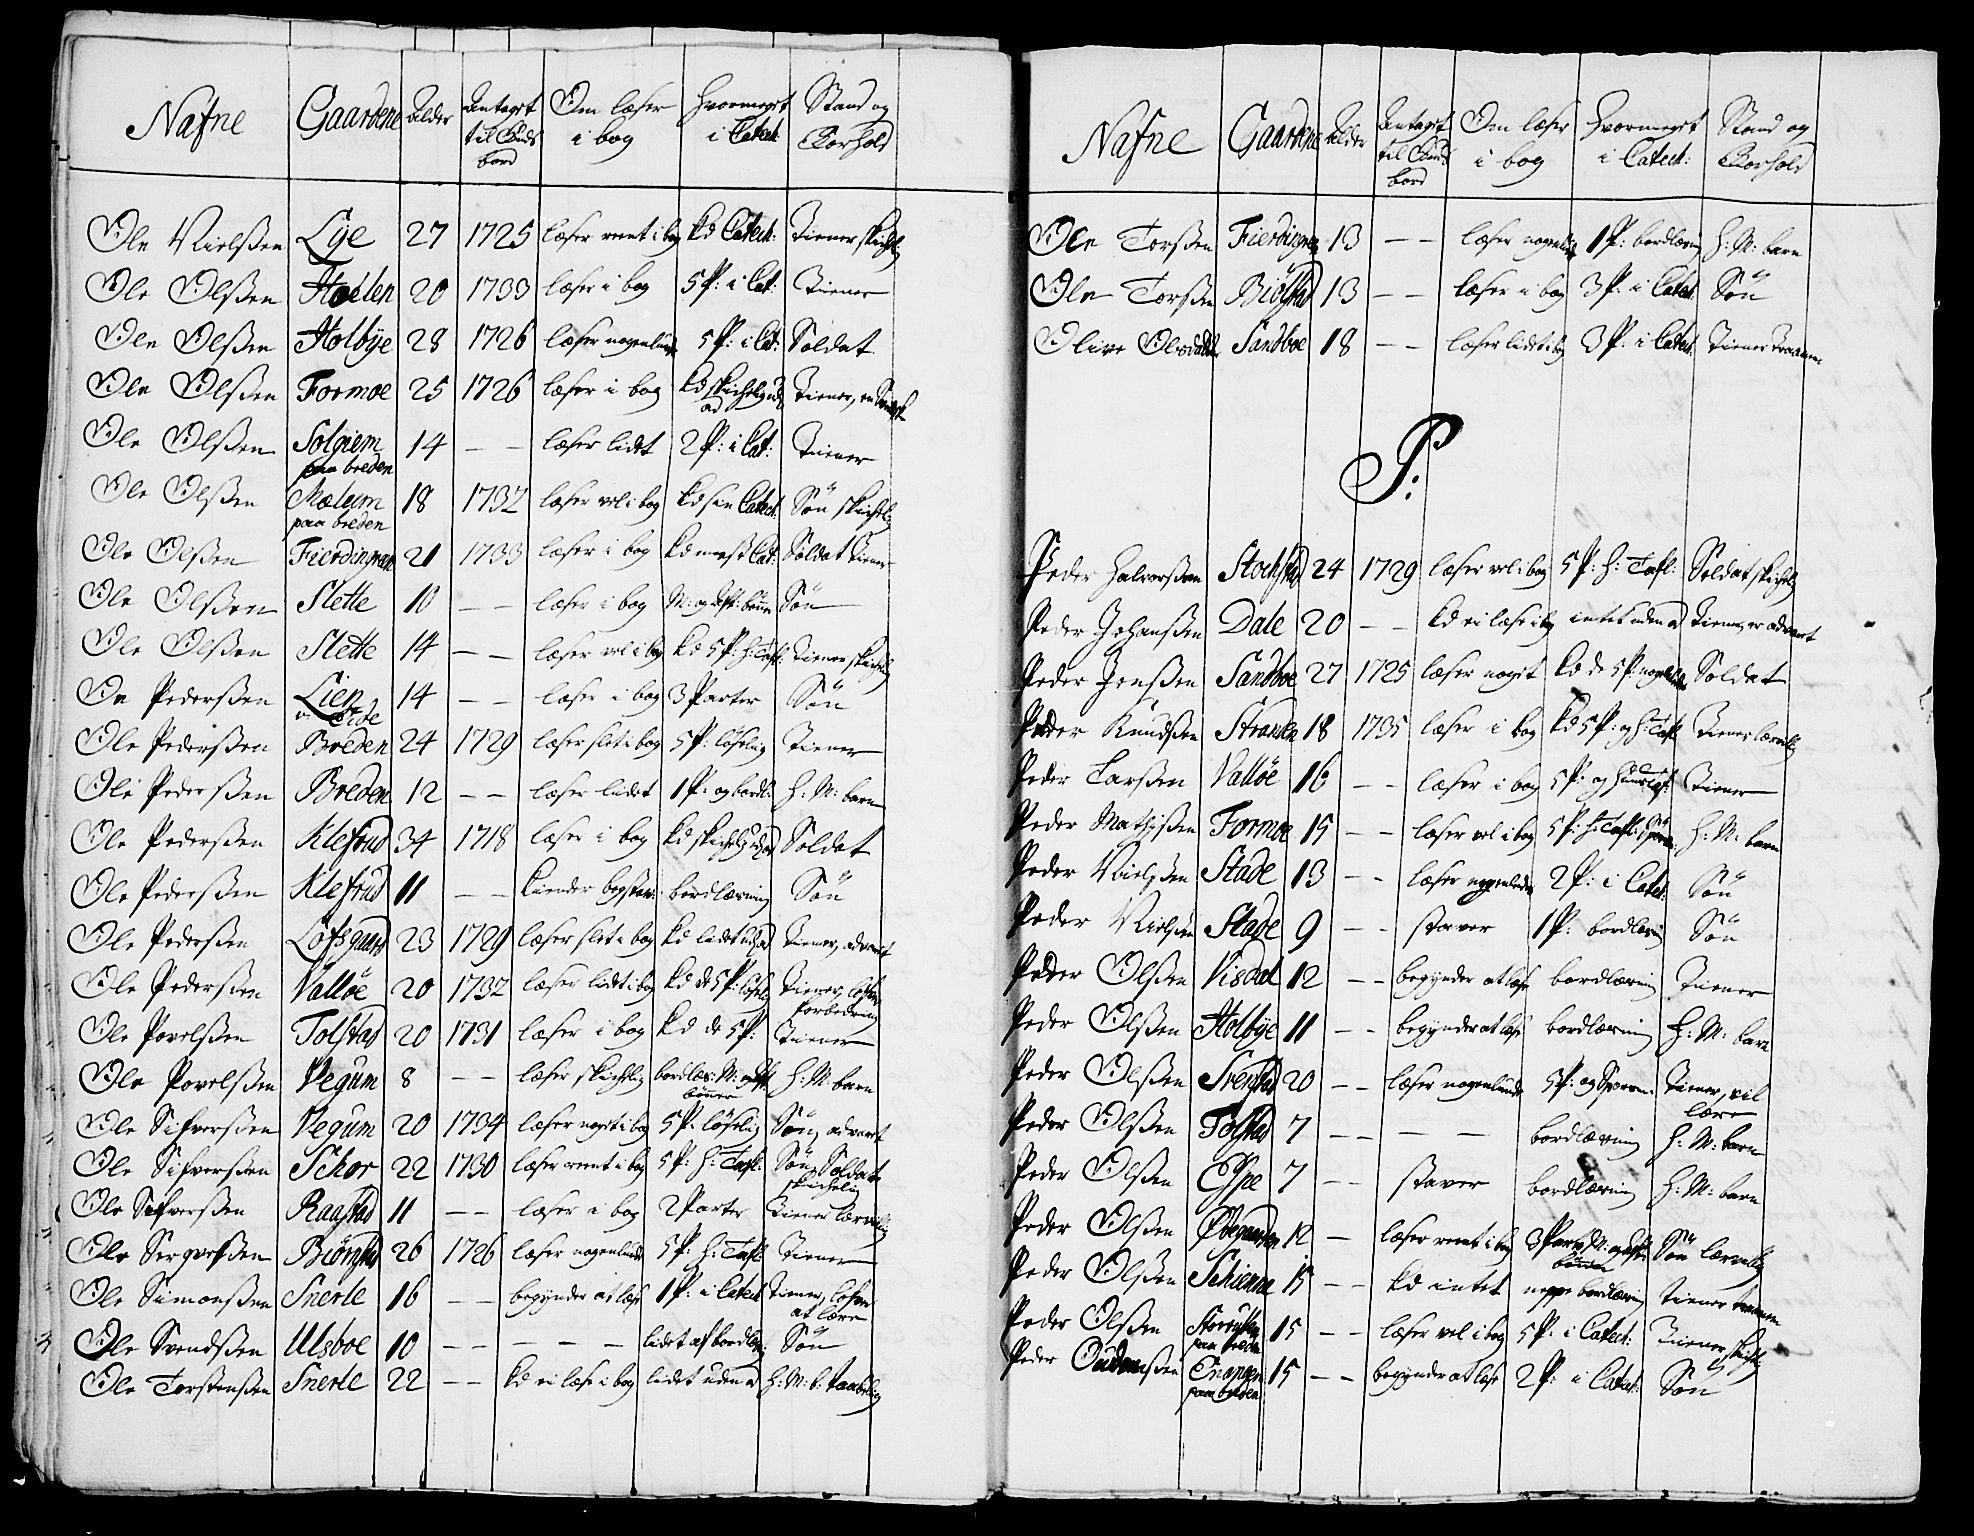 Nafne Gaardene Alder Antaget til Guds bord Om læser i bog Hvormeget i Catech: Stand og Forhold
Ole Nielsßen Lye 27 1725 læser rent i bog kd Catech: Tiener skichelig
Ole Olsßen Hoelen 20 1733 læser i bog 5 P: i Cat: Tiener
Ole Olsßen Holbye 28 1726 læser nogenlunde 5 P: i Cat: Soldat
Ole Olsßen Formoe 25 1726 læser i bog kd skichelig ud ad Tiener,
Ole Olsßen Solgiem paa breden 14 — — læser lidet 2 P: i Cat: Tiener
Ole Olsßen Mælum paa breden 18 1732 læser vel i bog kd sin Catech: Sön skichelig
Ole Olsßen Fierdingren 21 1733 læser i bog kd meest Cat: Soldat Tiener
Ole Olsßen Slette 10 — — læser i bog M: og Aft: bönner Sön
Ole Olsßen Slette 14 — — læser vel i bog kd 5 P: H: Tafl: Tiener skichelig
Ole Pedersßen Lien 14 — — læser i bog 3 Parter Sön
Ole Pedersßen Breden 24 1729 læser slet i bog 5 P: löselig Tiener
Ole Pedersßen Breden 12 — — læser lidet 1 P: og bordl: H: M: barn
Ole Pedersßen Klefrud 34 1718 læser i bog kd skichelig ud ad Soldat
Ole Pedersßen Klefrud 11 — — kiender bogstav: bordlæsning Sön
Ole Pedersßen Löfsgaard 23 1729 læser slet i bog kd lidet ud ad Tiener, advart
Ole Pedersßen Vallöe 20 1732 læser lidet i bog kd de 5 P: löselig Tiener, lofver forbedring
Ole Povelsßen Tolstad 20 1731 læser i bog kd de 5 P: Tiener
Ole Povelsßen Vegum 8 — — læser skichelig bordlæs: M: og Aft bönner H: M: barn
Ole Sifversßen Vegum 20 1734 læser noget i bog 5 P: löselig Sön, advart
Ole Sifversßen Schor 22 1730 læser rent i bog 5 P: H: Tafl: Sön Soldat skichelig
Ole Sifversßen Raastad 11 — — læser i bog 2 Parter Tiener lærvillig
Ole Sergvessßen Biörnstad 26 1726 læser nogenlunde 5 P: H: Tafl: Tiener
Ole Simonsßen Snerle 16 — — begynder at læse 1 P: i Catech Tiener, lofver at lære
Ole Svendsßen Ulsboe 10 — — — — lidet af bordlæsn: Sön
Ole Torstensßen Snerle 22 — — kd ei læse i bog lidet uden ad H: M: b: taabelig
Nafne Gaardene Alder Antaget til Guds bord Om læser i bog Hvormeget i Catech: Stand og Forhold
Ole Torsßen Fierdingren 13 — — læser nogenlunde 1 P: bordlæsning H: M: barn
Ole Torsßen Biölstad 13 — — læser i bog 3 P: i Catech: Sön
Olive Olsdatter Sandboe 18 — — læser lidet i bog 3 P: i Catech: Tiener
P:
Peder Halvorsßen Stochstad 24 1729 læser vel i bog 5 P: H: Tafl: Soldat skichelig
Peder Johansßen Dale 20 — — kd ei læse i bog intet uden ad Tiener, er advart
Peder Jensßen Sandboe 27 1725 læser noget kd de 5 P: nogenlunde Soldat
Peder Knudsßen 18 1735 læser i bog kd 5 P: og H: Tafl Tiener lærvillig
Peder Larsßen Vallöe 16 — — læser i bog 5 P: og Huustafl: Tiener
Peder Mathisßen Formoe 15 — — læser vel i bog 5 P: H: Tafl: H: M: barn
Peder Nielsßen Stade 13 — — læser nogenlunde 2 P: i Catech: Sön
Peder Nielsßen Stade 9 — — staver 1 P: bordlæsning Sön
Peder Olsßen Visdal 12 — — begynder at læse bordlæsning Tiener
Peder Olsßen Holbye 11 — — begynder at læse bordlæsning H: M: barn
Peder Olsßen Svenstad 20 — — læser nogenlunde 5 P: og Spörsm: Tiener, vil lære
Peder Olsßen Tolstad 7 — — — — bordlæsning H: M: barn
Peder Olsßen Espe 7 — — staver bordlæsning H: M: barn
Peder Olsßen Öfvgaarden 12 — læser rent i bog 3 Parter M: og Aften bönner Sön lærvillig
Peder Olsßen Schienna 15 — — kd intet neppe bordlæsning Tiener
Peder Olsßen paa breden 15 — — læser vel i bog 5 P: i Catech: Tiener skichelig
Peder Oudensßen Enangen paa breden 15 — — begynder at læse 2 P: i Catech: Sön